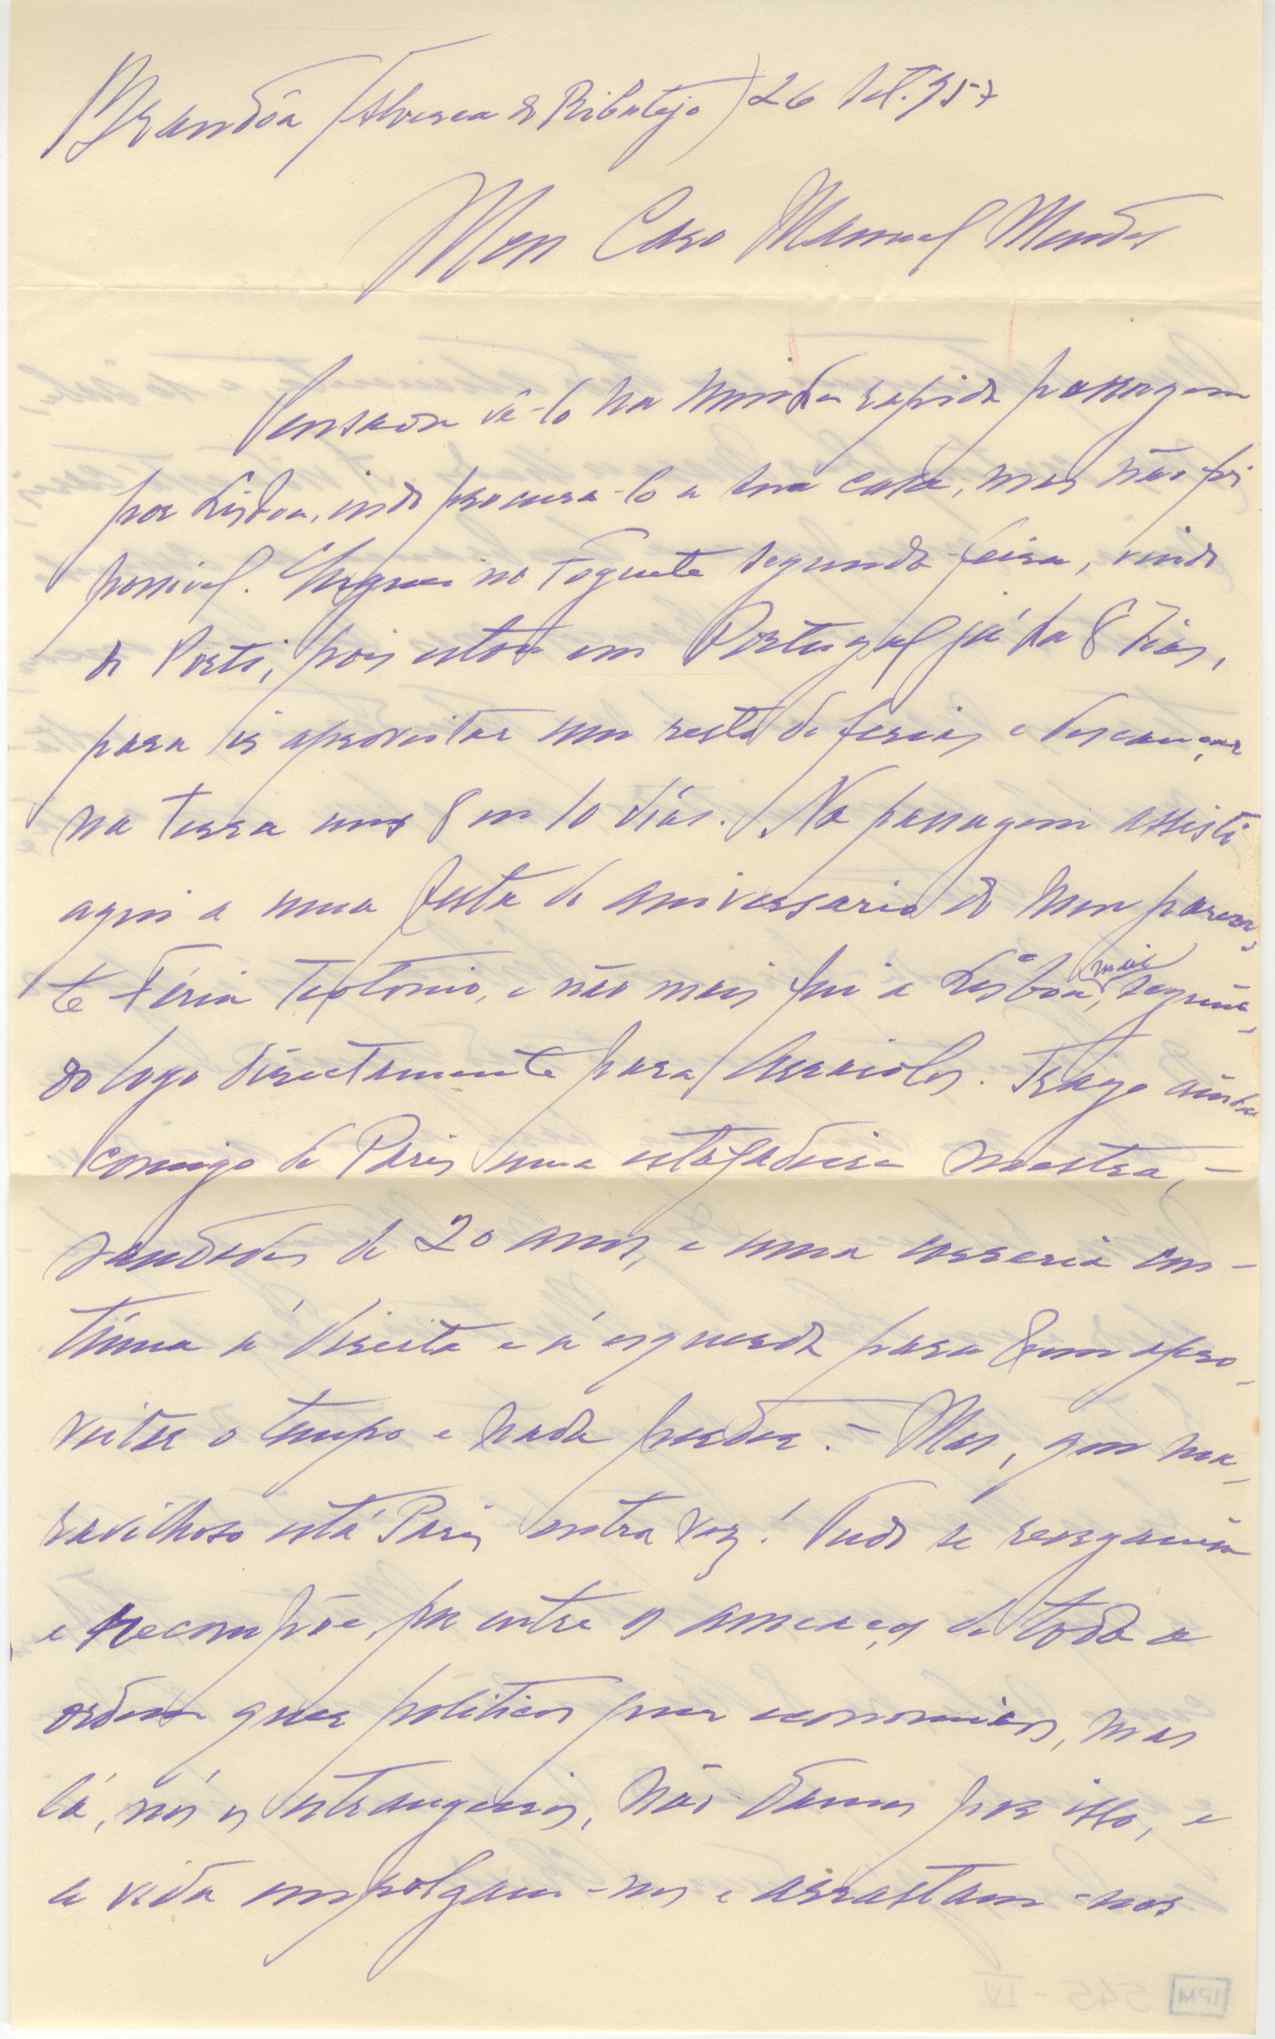 Brandôa (Alverca do Ribatejo) 26 Set. 957
Meu Caro Manuel Mendes
Pensava vê-lo na minha rapida passagem
por Lisboa, indo procura-lo a sua casa, mas não foi
possivel. Cheguei no Foguete segunda-feira, vindo
do Porto, pois estou em Portugal já ha 8 dias,
para ir aproveitar um resto de ferias e descançar
na terra uns 8 ou 10 dias. Na passagem assisti
aqui a uma festa de aniversario do meu paren-
te Féria Teotonio, e não mais fui a Lisboa, seguin-
do logo directamente para Arraiolos. Trago ainda
comigo de Paris uma estafadeira mestra, -
saudades de 20 anos, e uma correria con-
tinua á direita e á esquerda para bem apro-
veitar o tempo e nada perder. - Mas, que ma-
ravilhoso está Paris outra vez! Tudo se reorganiza
e recompõe, por entre os ameaços de toda a
ordem quer politicos quer economicos, mas
lá, nós os estrangeiros, não damos por isso, e
a vida empolgam-nos e arrastam-nos
IPM 545 - IV